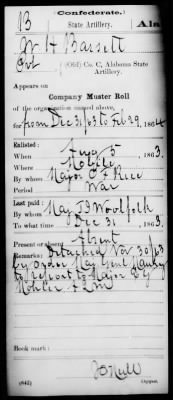 (Confederate.)
B State Artillery. Ala
W H Bassett
Pvt, (Old) Co. C, Alabama State
Artillery.
Appears on
Company Muster Roll
of the organization named above,
for from Dec 31/63 to Feb 29, 1864
Enlisted:
When Aug 5, 1863.
Where Mobile
By whom Major C F Rice
Period War
Last paid:
By whom Maj T B Woolfolk
To what time Dec 31, 1863.
Present or absent Absent
Remarks: Detached Nov 30/63
by order Maj Genl Maury
to report to Major
Mobile Ala
Book mark:
(642) Copyist.